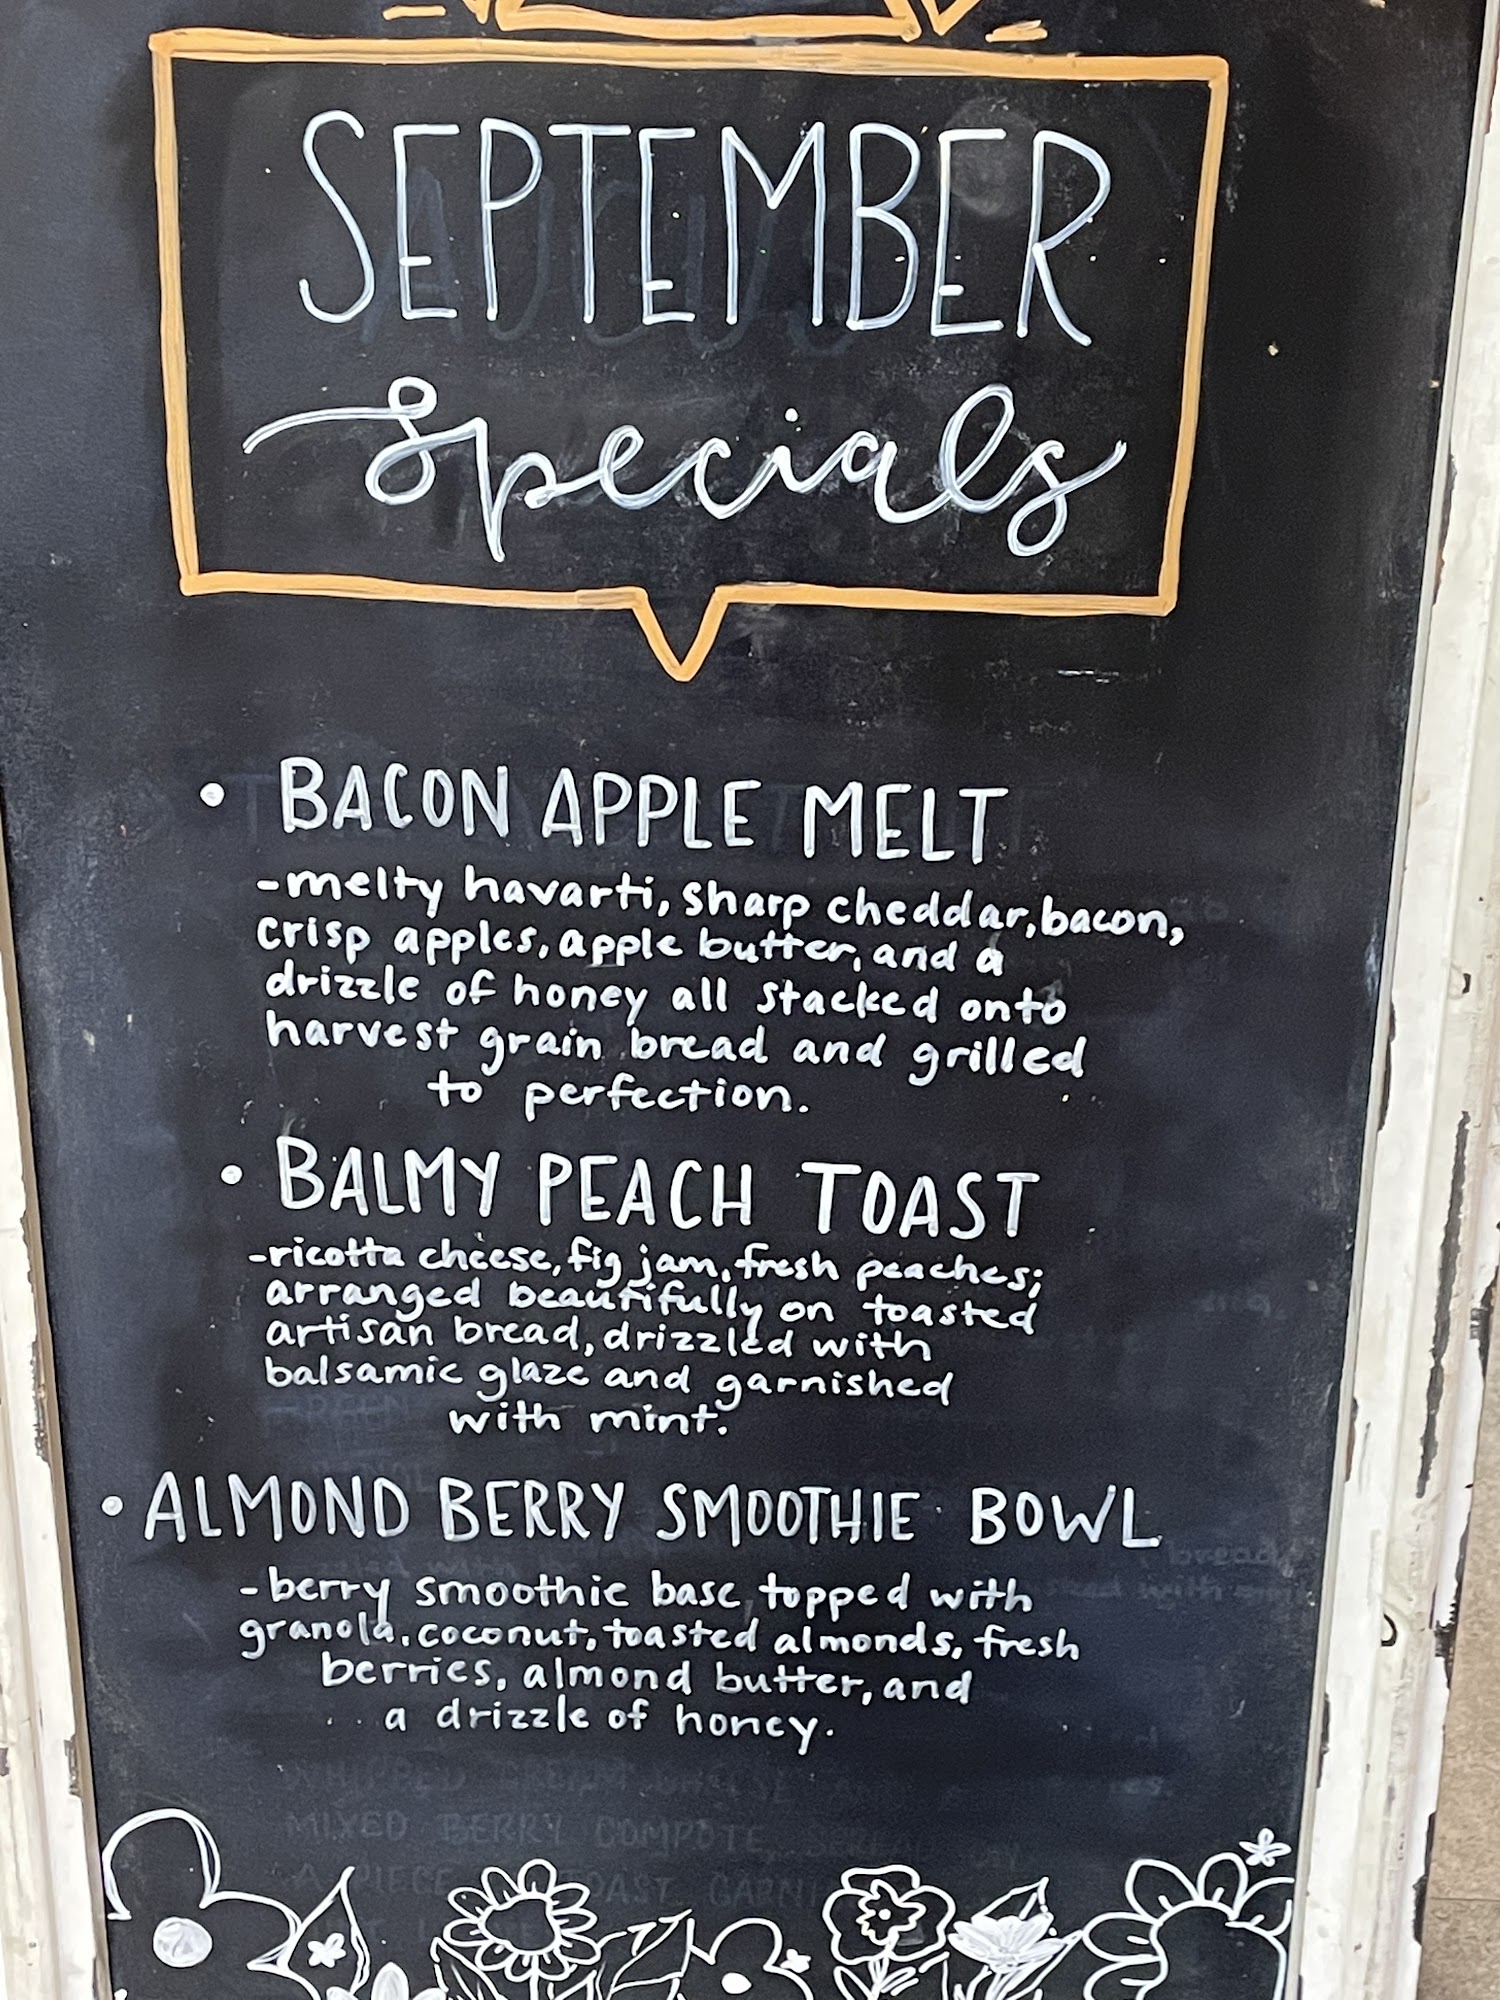 SEPTEMBER
Specials
• BACON APPLE MELT
-melty havarti, sharp cheddar, bacon,
crisp apples, apple butter, and a
drizzle of honey all stacked onto
harvest grain bread and grilled
to perfection.
• BALMY PEACH TOAST
-ricotta cheese, fig jam, fresh peaches;
arranged beautifully on toasted
artisan bread, drizzled with
balsamic glaze and garnished
with mint.
• ALMOND BERRY SMOOTHIE BOWL
-berry smoothie base topped with
granola, coconut, toasted almonds, fresh
berries, almond butter, and
a drizzle of honey.
MIXED BERRY COMPOTE